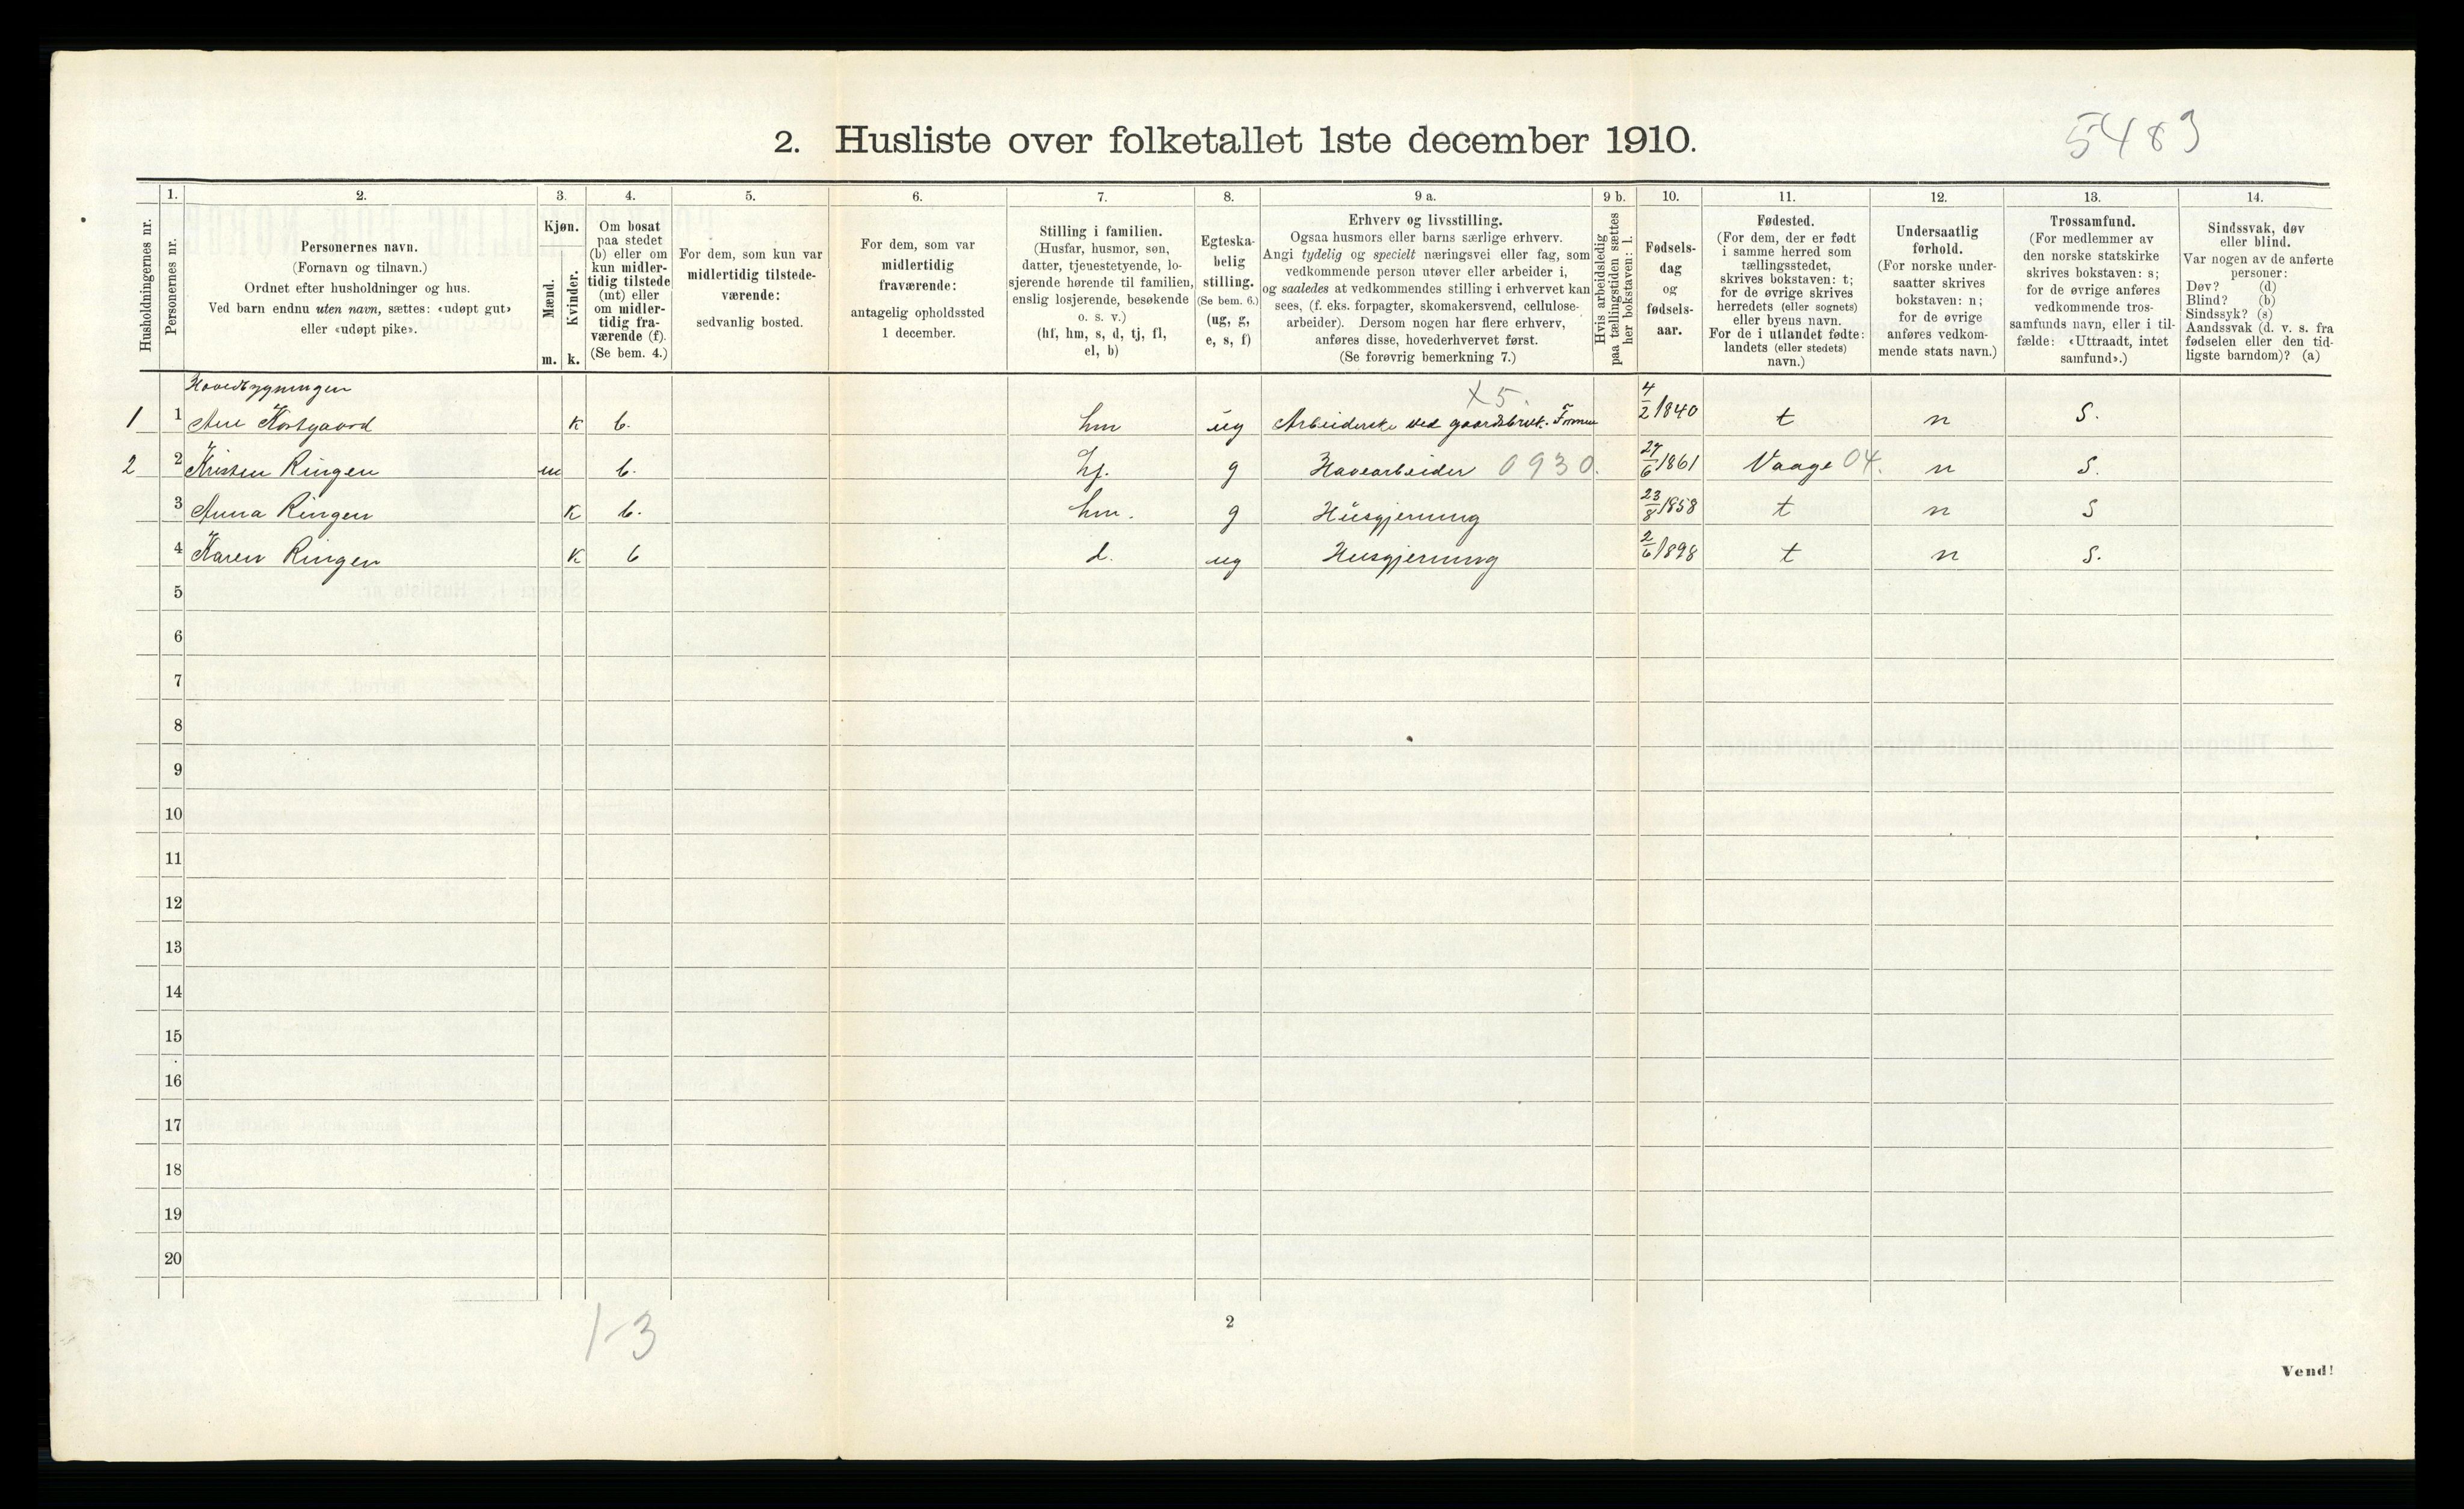 2. Husliste over folketallet 1ste december 1910.
5483
Husholdningernes nr.
1.
Personernes nr.
2.
Personernes navn.
(Fornavn og tilnavn.)
Ordnet efter husholdninger og hus.
Ved barn endnu uten navn, sættes: «udøpt gut»
eller «udøpt pike».
3.
Kjøn.
Mænd.
m.
Kvinder.
k.
4.
Om bosat
paa stedet
(b) eller om
kun midler-
tidig tilstede
(mt) eller
om midler-
tidig fra-
værende (f).
(Se bem. 4.)
5.
For dem, som kun var
midlertidig tilstede-
værende:
sedvanlig bosted.
6.
For dem, som var
midlertidig
fraværende:
antagelig opholdssted
1 december.
7.
Stilling i familien.
(Husfar, husmor, søn,
datter, tjenestetyende, lo-
sjerende hørende til familien,
enslig losjerende, besøkende
o. s. v.)
(hf, hm, s, d, tj, fl,
el, b)
8.
Egteska-
belig
stilling.
(Se bem. 6.)
(ug, g,
e, s, f)
9 a.
Erhverv og livsstilling.
Ogsaa husmors eller barns særlige erhverv.
Angi tydelig og specielt næringsvei eller fag, som
vedkommende person utøver eller arbeider i,
og saaledes at vedkommendes stilling i erhvervet kan
sees, (f. eks. forpagter, skomakersvend, cellulose-
arbeider). Dersom nogen har flere erhverv,
anføres disse, hovederhvervet først.
(Se forøvrig bemerkning 7.)
9 b.
Hvis arbeidsledig
paa tællingstiden sættes
her bokstaven: l.
10.
Fødsels-
dag
og
fødsels-
aar.
11.
Fødested.
(For dem, der er født
i samme herred som
tællingsstedet,
skrives bokstaven: t;
for de øvrige skrives
herredets (eller sognets)
eller byens navn.
For de i utlandet fødte:
landets (eller stedets)
navn.)
12.
Undersaatlig
forhold.
(For norske under-
saatter skrives
bokstaven: n;
for de øvrige
anføres vedkom-
mende stats navn.)
13.
Trossamfund.
(For medlemmer av
den norske statskirke
skrives bokstaven: s;
for de øvrige anføres
vedkommende tros-
samfunds navn, eller i til-
fælde: «Uttraadt, intet
samfund».)
14.
Sindssvak, døv
eller blind.
Var nogen av de anførte
personer:
Døv? (d)
Blind? (b)
Sindssyk? (s)
Aandssvak (d. v. s. fra
fødselen eller den tid-
ligste barndom)? (a)
Hovedbygningen
1 1 Ane Kortgaard k b. hm ug Arbeiderske ved gaardsbruk. X5. 4/2 1840 t n S.
2 2 Kristen Ringen m b. hf. g Havearbeider 0930. 27/6 1861 Vaage 04. n S.
3 Anna Ringen k b. hm. g Husgjerning 23/8 1858 t n S
4 Karen Ringen k b d. ug Husgjerning 2/6 1898 t n S.
5
6
7
8
9
10
11
12
13
14
15
16
17
18
19
20
1-3
2
Vend!